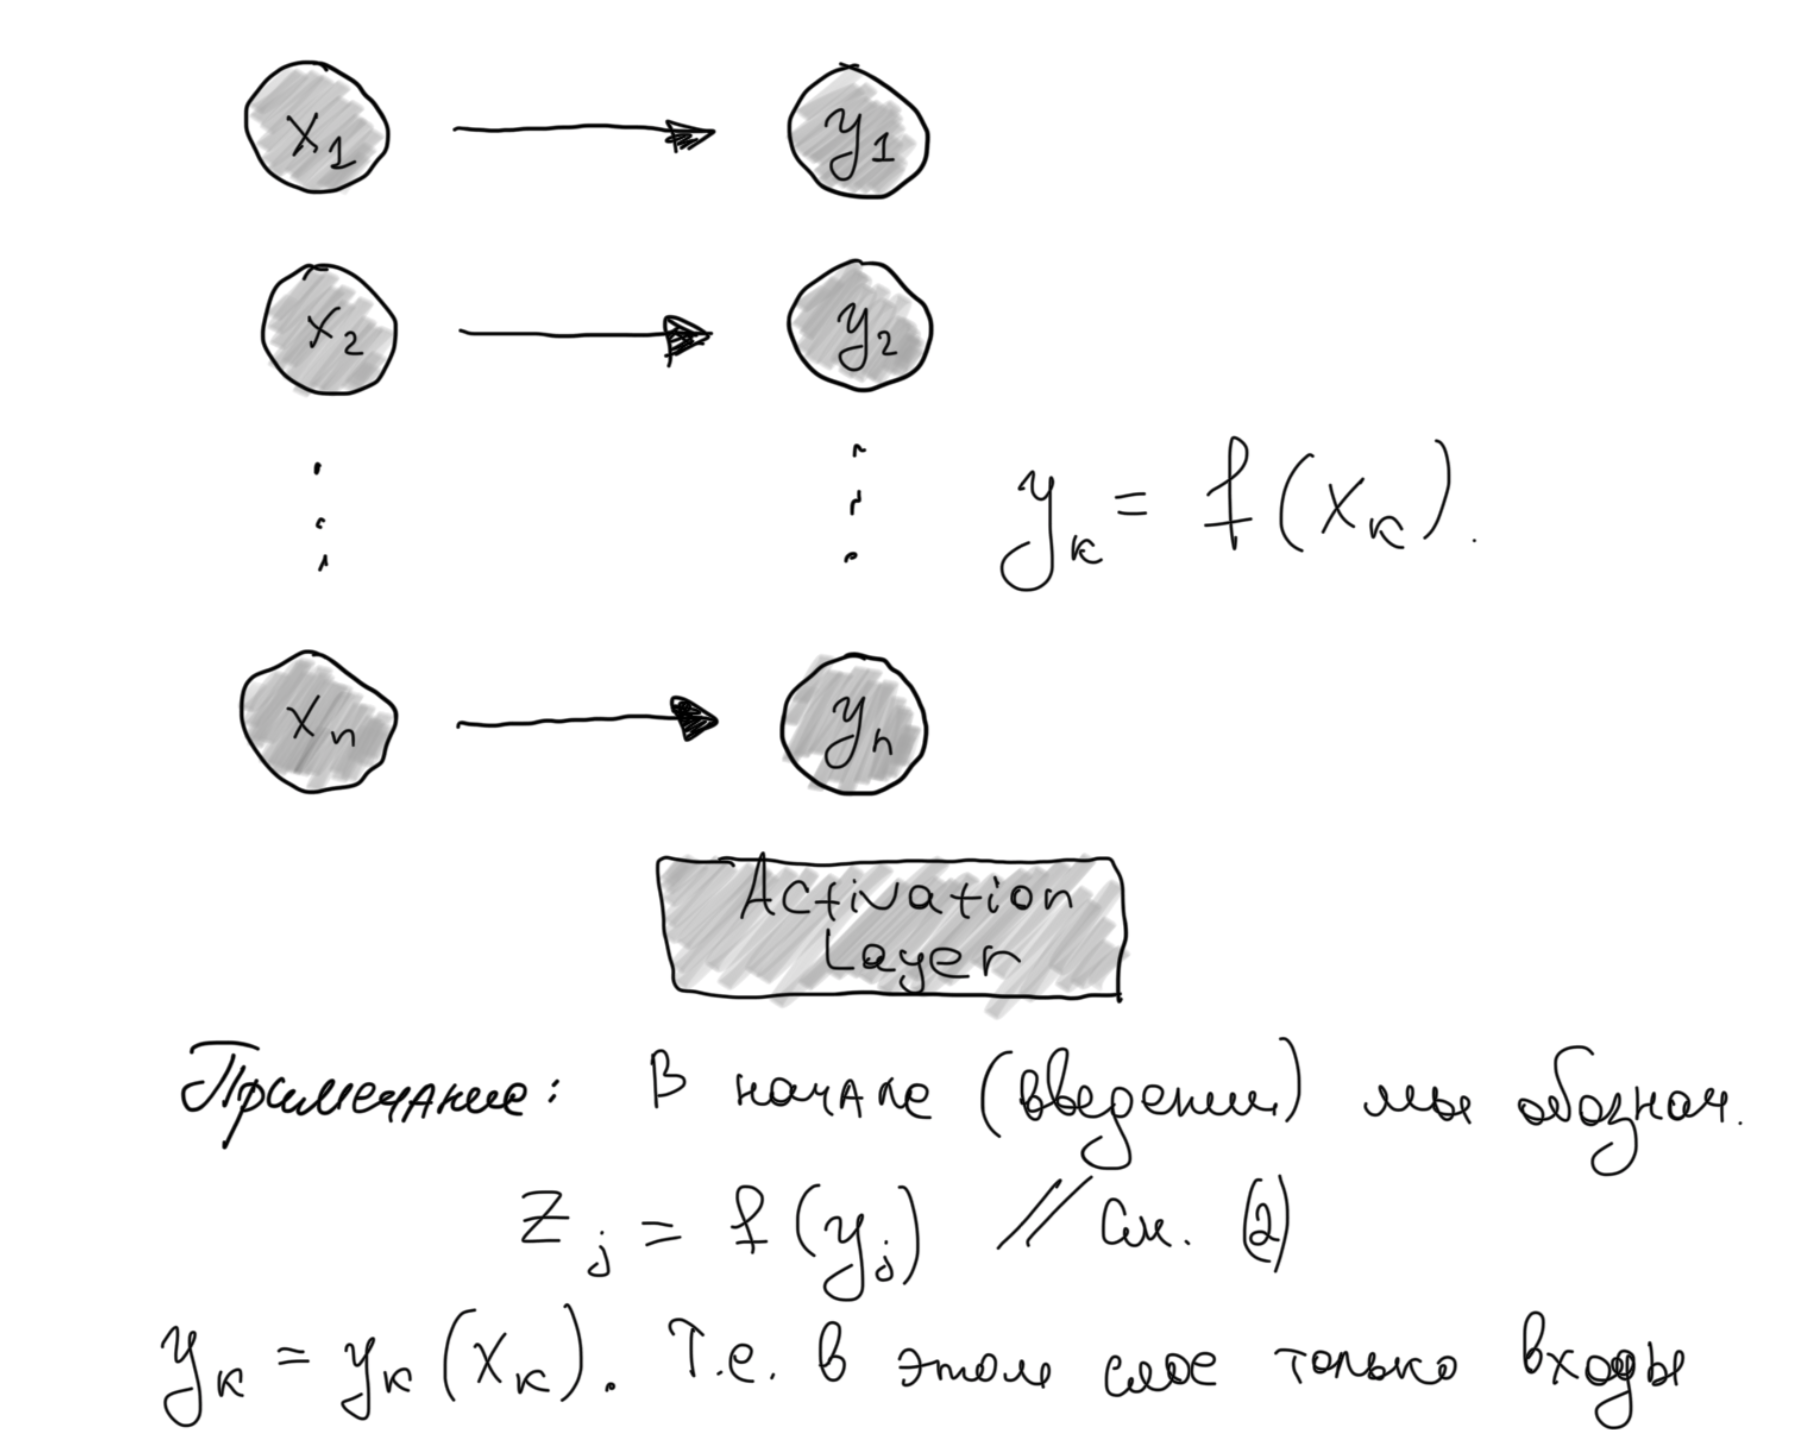 x₁ y₁
x₂ y₂
yₖ = f(xₖ).
xₙ yₙ
Activation
Layer
Примечание: В начале (введении) мы обознач.
Zⱼ = f(yⱼ) // См. (2)
yₖ = yₖ(xₖ). Т.е. в этом слое только входы